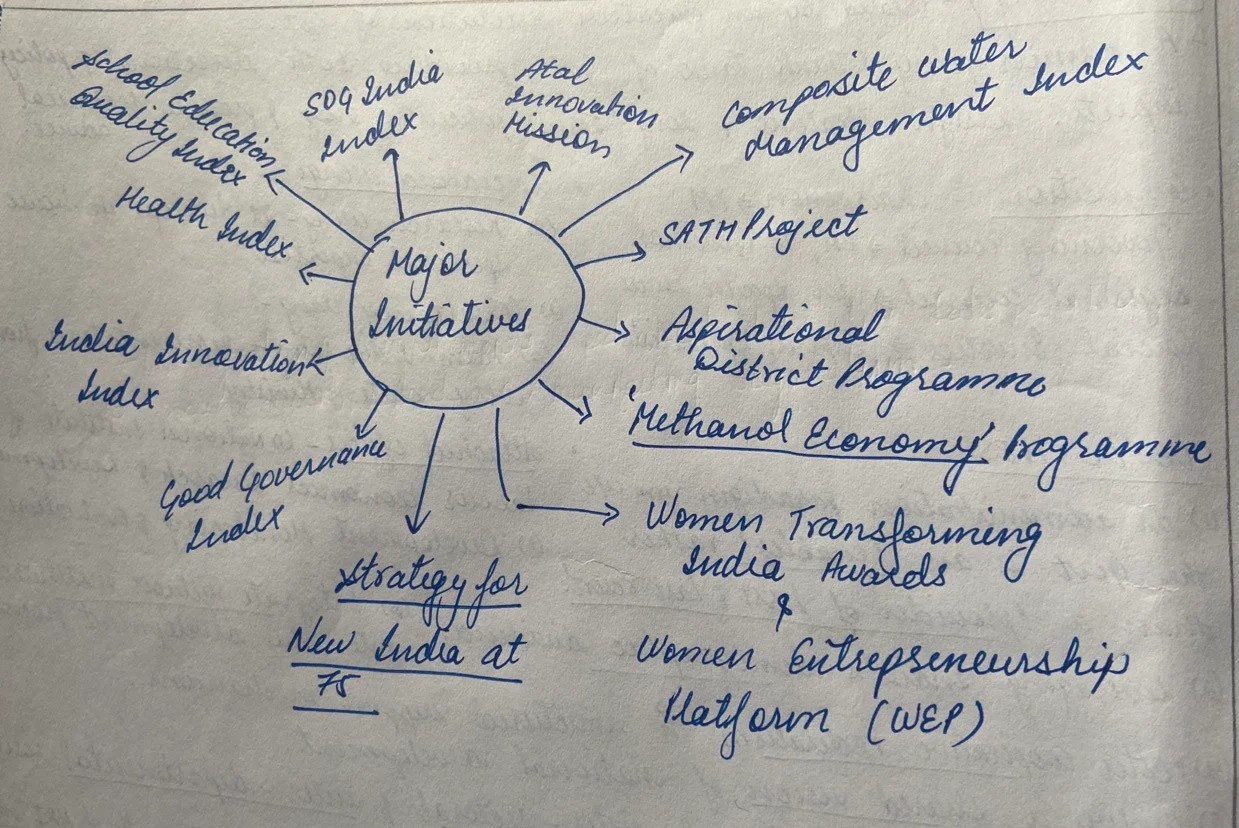 School Education
Quality Index
SDG India
Index
Atal
Innovation
Mission
Composite Water
Management Index
Health Index
SATH Project
Major
Initiatives
Aspirational
District Programme
India Innovation
Index
'Methanol Economy' Programme
Good Governance
Index
Women Transforming
India Awards
&
Women Entrepreneurship
Platform (WEP)
Strategy for
New India at
75